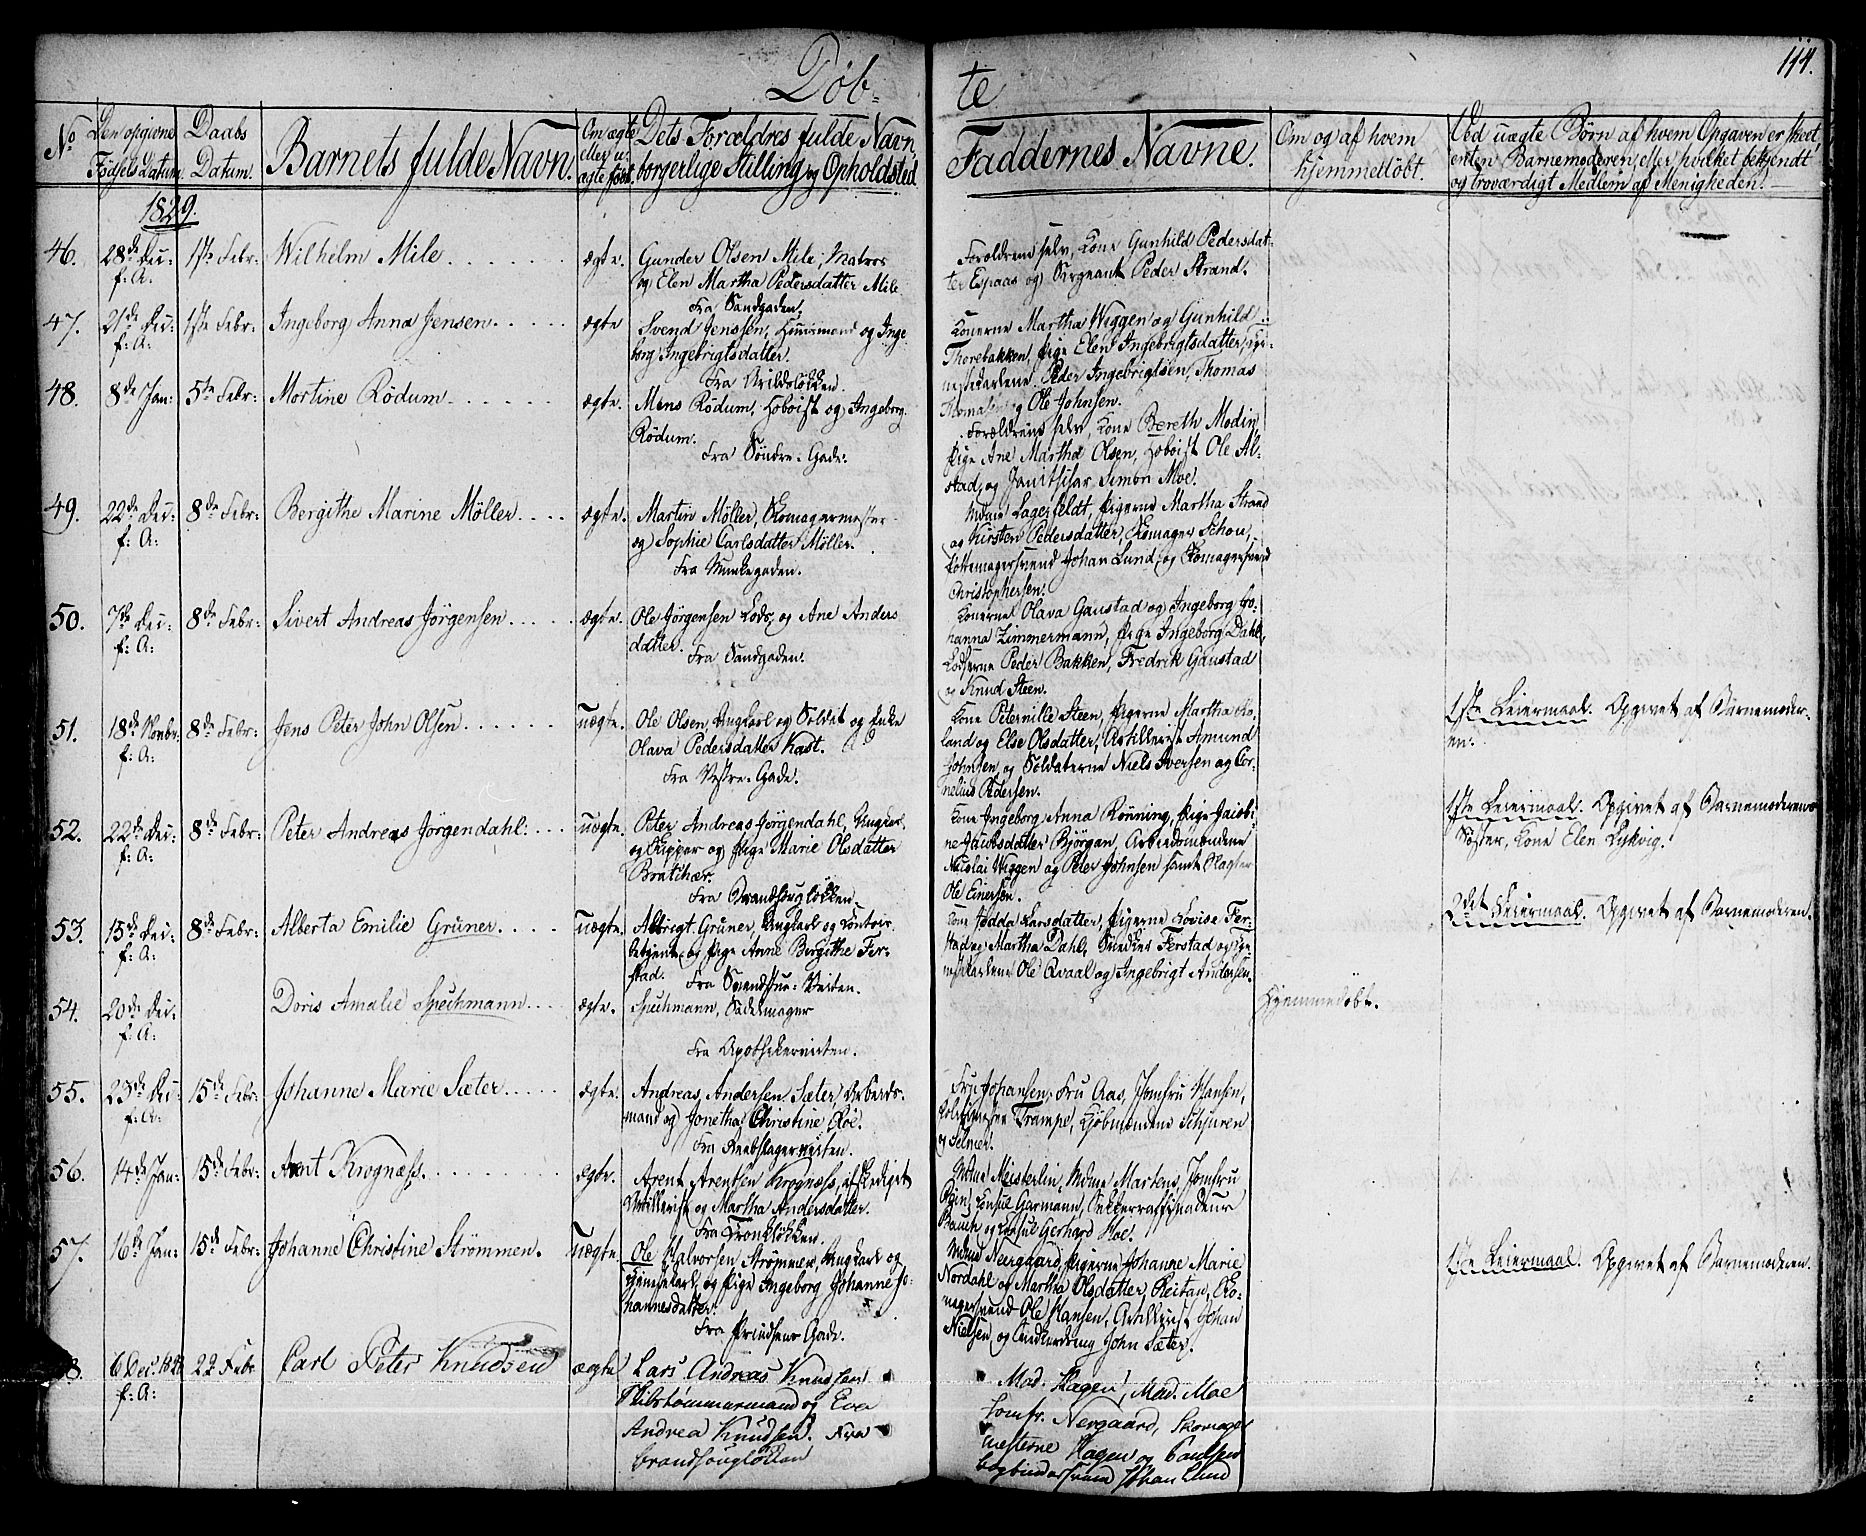 Døb-
te
114.
No
Den opgivne Fødsels Datum.
Daabs Datum.
Barnets fulde Navn.
Om ægte eller uægte født.
Dets Forældres fulde Navn, borgerlige Stilling og Opholdsted
Faddernes Navne.
Om og af hvem hjemmedøbt.
Ved uægte Børn af hvem Opgaven er skeet, enten Barnemoderen, eller hvilket bekjendt og troværdigt Medlem af Menigheden?
1829.
46. 28de Dec: f: A: 1ste Febr: Wilhelm Mile ægte.
Gunder Olsen Mile, Matros
og Elen Martha Pedersdatter Mile
Fra Sandgaden.
Forældrene selv, Kone Gunhild Pedersdat-
ter Espaas og Sergeant Peder Strand.
47. 21de Dec: f: A: 1ste Febr: Ingeborg Anna Jensen ægte
Svend Jenssen, Huusmand og Inge
borg Ingebrigtsdatter.
Fra Arildsløkken.
Konerne Martha Wiggen og Gunhild
Thorebakken, Pige Elen Ingebrigtsdatter,
Peder Ingebrigtsen, Thomas
Thomasen og Ole Johnsen.
48. 8de Jan: 5te Febr: Mortine Rödum ægte.
Mons Rödum, Hoboist og Ingeborg
Rödum.
Fra Söndre-Gade.
Forældrene selv, Kone Bereth Modin
Pige Ane Martha Olsen, Hoboist Ole Al-
stad, og Janitshar Simon Moe.
49. 22de Dec: f: A: 8de Febr: Bergithe Marine Möller ægte.
Martin Möller, Skomagermester
og Sophie Carlsdatter Möller.
Fra Munkegaden.
Mdme Lagersfeldt, Pigerne Martha Strand
og Kirsten Pedersdatter, Skomager Schou,
Pottemagersvend Johan Lund, og Skomagersvend
Christophersen.
50. 7de Dec: f: A: 8de Febr: Sivert Andreas Jörgensen ægte.
Ole Jörgensen Lods, og Ane Anders
datter.
Fra Sandgaden.
Konerne Olava Gaustad og Ingeborg Jo-
hanna Zimmermann, Pige Ingeborg Dahl,
Lodserne Peder Bakken, Fredrik Gaustad
og Knud Steen.
51. 18de Novbr: f: A: 8de Febr: Jens Peter John Olsen uægte.
Ole Olsen, Ungkarl og Soldat og Enke
Olava Pedersdatter Kast.
Fra Vestre-Gade.
Kone Peternille Steen, Pigerne Martha Ro-
land og Else Olsdatter, Artillerist Amund
Johnsen og Soldaterne Niels Iversen og Cor-
nelius Pedersen.
1ste Leiermaal. Opgivet af Barnemoder-
en.
52. 22de Dec: f: A: 8de Febr: Peter Andreas Jörgendahl. uægte.
Peter Andreas Jörgendahl, Ungkarl
og Skipper og Pige Marie Olsdatter
Bratihær.
Fra Brandsougløkken.
Kone Ingeborg Anna Rönning, Pige Jacobi
ne Jacobsdatter Björgan, Arbeidsmændene
Nicolai Wiggen og Peter Johnsen samt Slagter
Ole Einersen.
1ste Leiermaal. Opgivet af Barnemoderens
Søster, Kone Elen Lykvig.
53. 15de Dec: f: A: 8de Febr: Alberta Emilie Gruner uægte.
Albrigt Gruner, Ungkarl og Contoir
betjent, og Pige Anne Bergithe Fer-
stad.
Fra Brandstue-Veiten.
Kone Jödda Larsdatter, Pigerne Lovise Fer-
stad og Martha Dahl, Snedker Ferstad og Tje-
nestekarlene Ole Qvaal og Ingebrigt Andersen.
2det Leiermaal. Opgivet af Barnemoderen.
54. 20de Dec: f: A: Doris Amalie Spechmann ægte.
Spechmann, Saddelmager
Fra Apothekerveiten.
Hjemmedøbt.
55. 23de Dec: f: A: 15de Febr: Johanne Marie Sæter ægte.
Andreas Andersen Sæter, Arbeids-
mand og Jonetha Christine Roe.
Fra Reebslagerveiten.
Fru Johansen, Fru Aas, Jomfru Hansen,
Trampe, Kjöbmændene Schjuren
og Selmer.
56. 14de Jan: 15de Febr: Arnt Krognæss. ægte.
Arent Arentsen Krognæss, afskediget
Artillerist og Martha Andersdatter.
Fra Tronkløkken.
Mdme Meisterlin, Mdme Martens, Jomfru
Consul Garmann, Sukkerraffinadeur
Bauch og Consul Gerhard Hoe.
57. 16de Jan: 15de Febr: Johanne Christine Strömmen. uægte.
Ole Halvorsen Strömmen, Ungkarl og
Tjenestekarl, og Pige Ingeborg Johanne Jo-
hannesdatter.
Fra Prindsens Gade.
Mdme Neergaard, Pigerne Johanne Marie
Nordahl og Martha Olsdatter Reitan, Sko-
magersvend Ole Hansen, Artillerist Johan
Nielsen, og John Sæter.
1ste Leiermaal. Opgivet af Barnemoderen.
58. 6 Dec. 1828 f: A: 22 Febr Carl Peter Knudsen ægte
Lars Andreas Knudsen
Skibstømmermand og Eva
Andrea Knudsen. Fra
Brandsougløkken
Mad. Hagen, Mad. Moe
Jomfr. Nergaard, Skomager
mesterne Hagen og Paulsen
Bogbindersvend Johan Lund